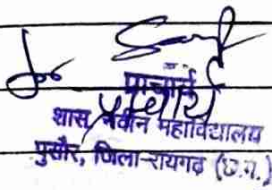 प्राचार्य
शास. नवीन महाविद्यालय
पुसौर, जिला-रायगढ़ (छ.ग.)